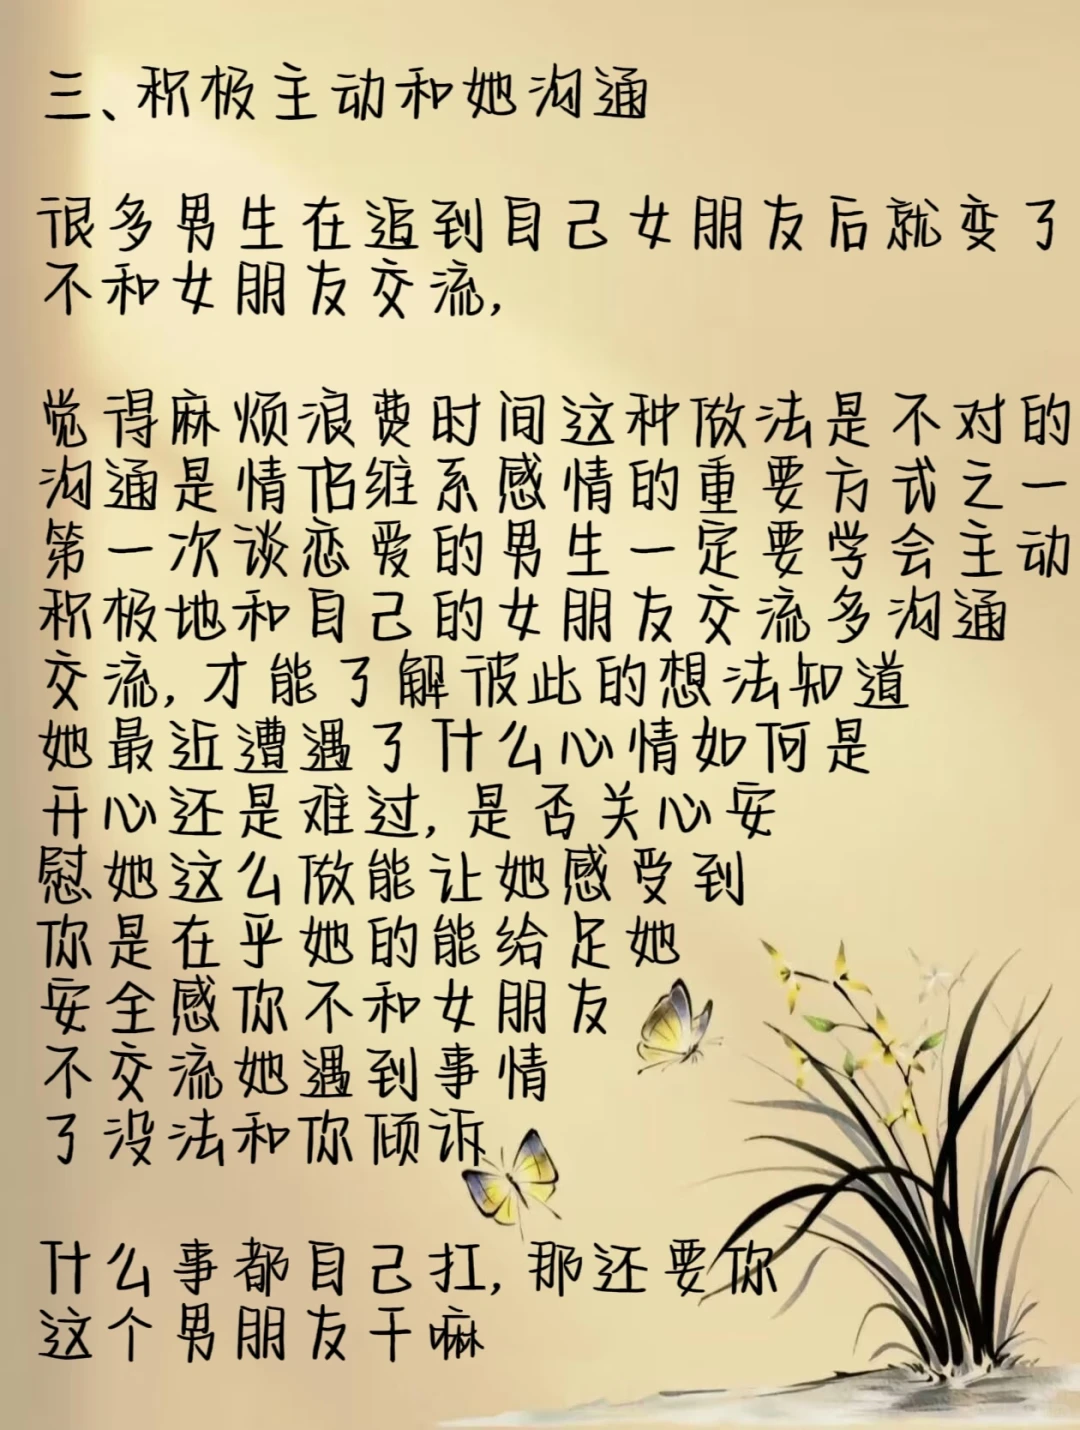 三、积极主动和她沟通
很多男生在追到自己女朋友后就变了
不和女朋友交流,
觉得麻烦浪费时间这种做法是不对的
沟通是情侣维系感情的重要方式之一
第一次谈恋爱的男生一定要学会主动
积极地和自己的女朋友交流多沟通
交流,才能了解彼此的想法知道
她最近遭遇了什么心情如何是
开心还是难过,是否关心安
慰她这么做能让她感受到
你是在乎她的能给足她
安全感你不和女朋友
不交流她遇到事情
了没法和你倾诉
什么事都自己扛,那还要你
这个男朋友干嘛